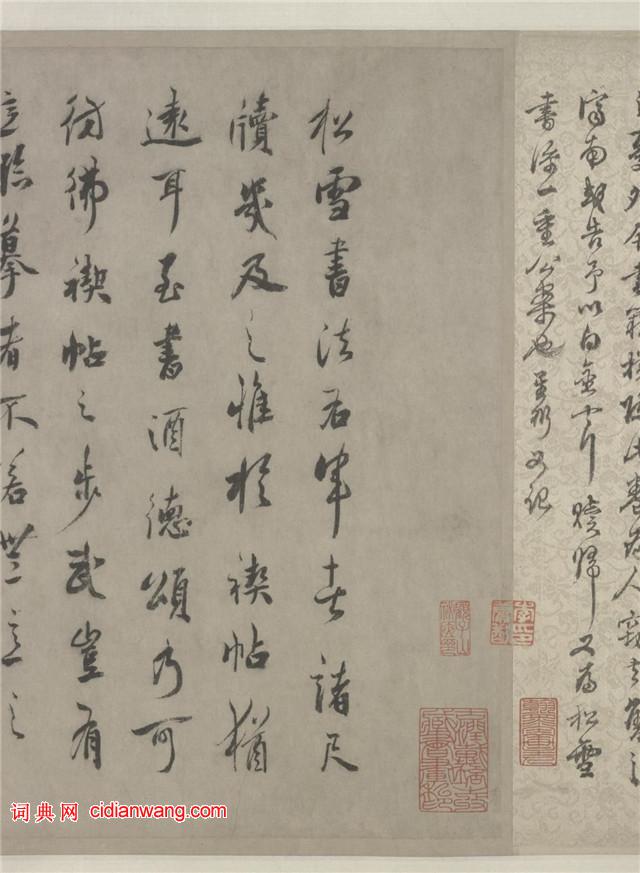 此卷為人竊去舊之
告予以白金十斤贖歸又為松雪
書添一重公案也
松雪書法右軍諸尺
牘幾及之惟於禊帖猶
遠耳至書酒德頌乃可
彷彿禊帖之步武豈有
意臨摹者不若無意之
词典网 cidianwang.com